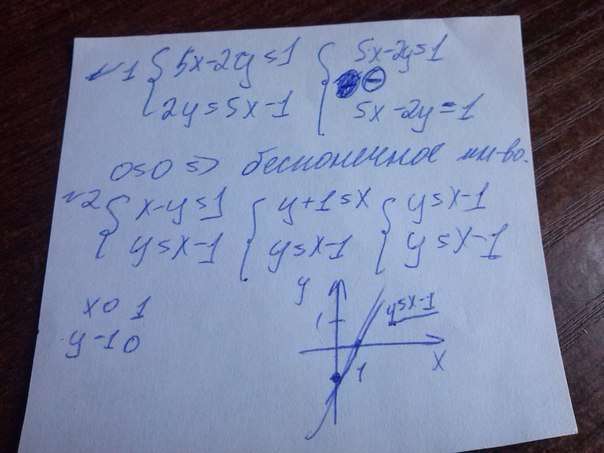 №1 { 5x-2y=1 { 5x-2y=1
2y=5x-1 ⊖ 5x-2y=1
0=0 => бесконечное мн-во.
№2 { x-y=1 { y+1=x { y=x-1
y=x-1 y=x-1 y=x-1
x 0 1
y -1 0
y
1
y=x-1
1
x